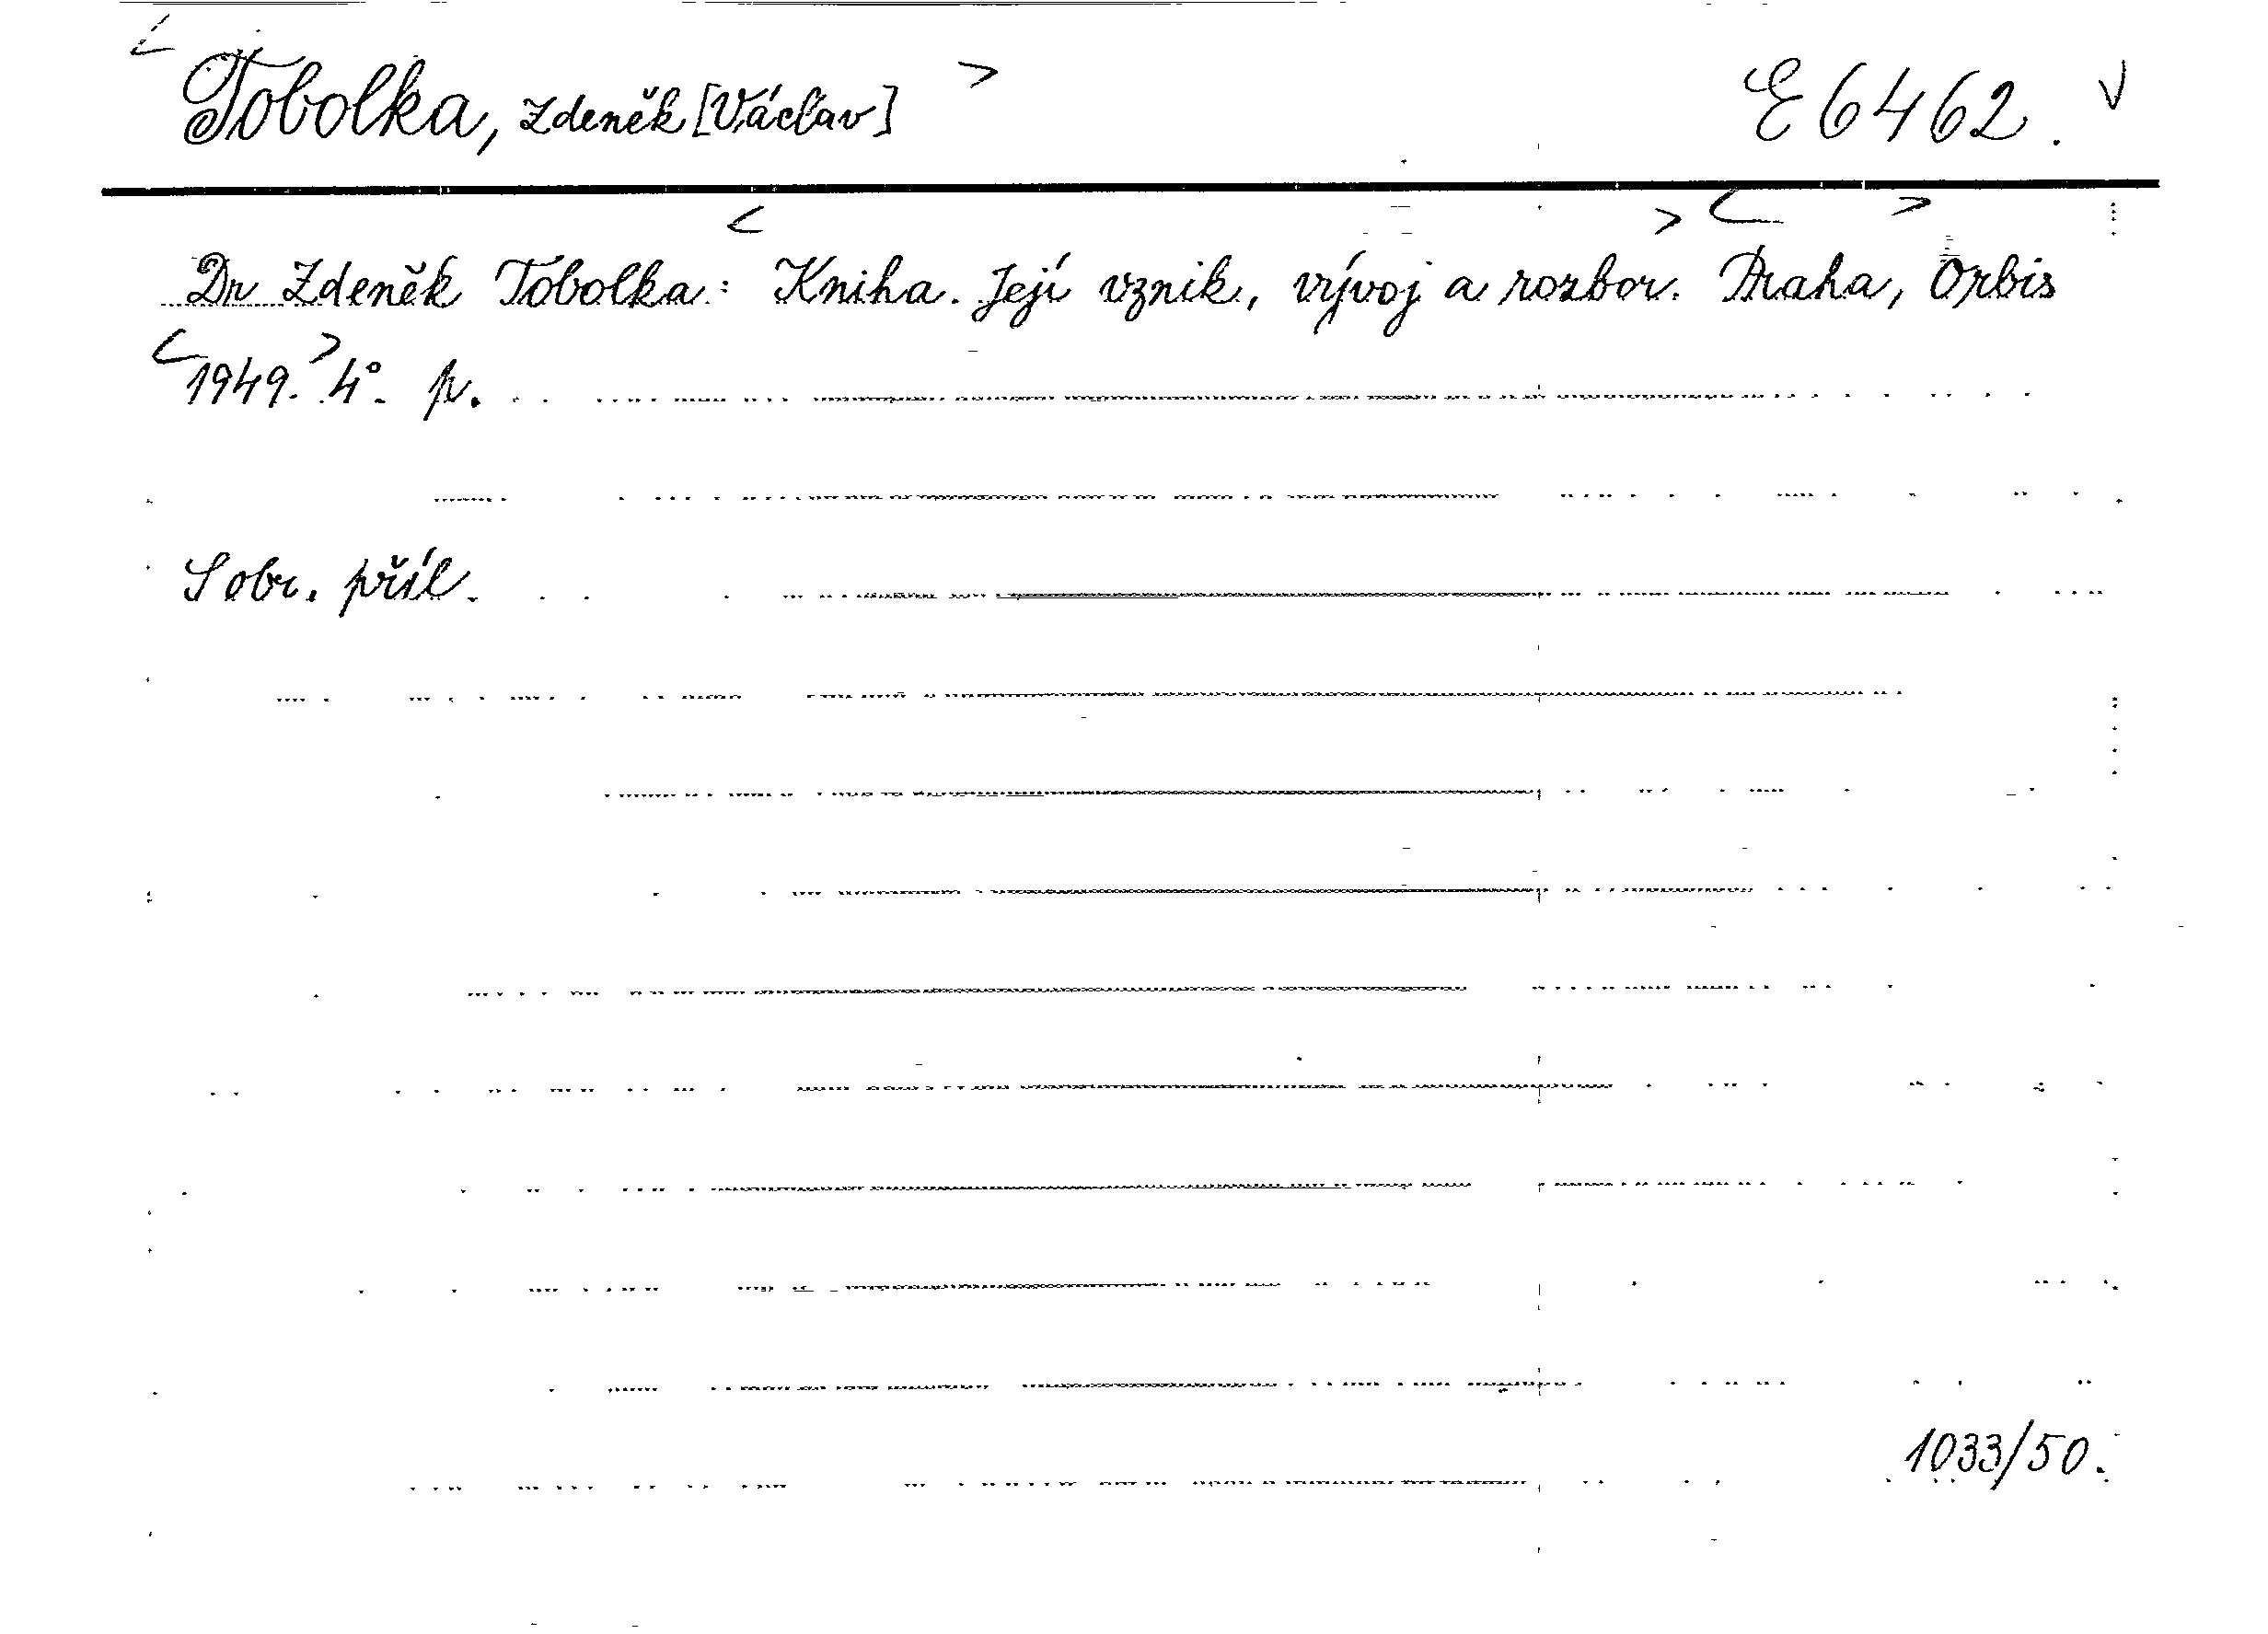 Tobolka, Zdeněk [Václav] E 6462.
Dr Zdeněk Tobolka: Kniha. Její vznik, vývoj a rozbor. Praha, Orbis
1949. 4°. p.
S obr. příl.
1033/50.